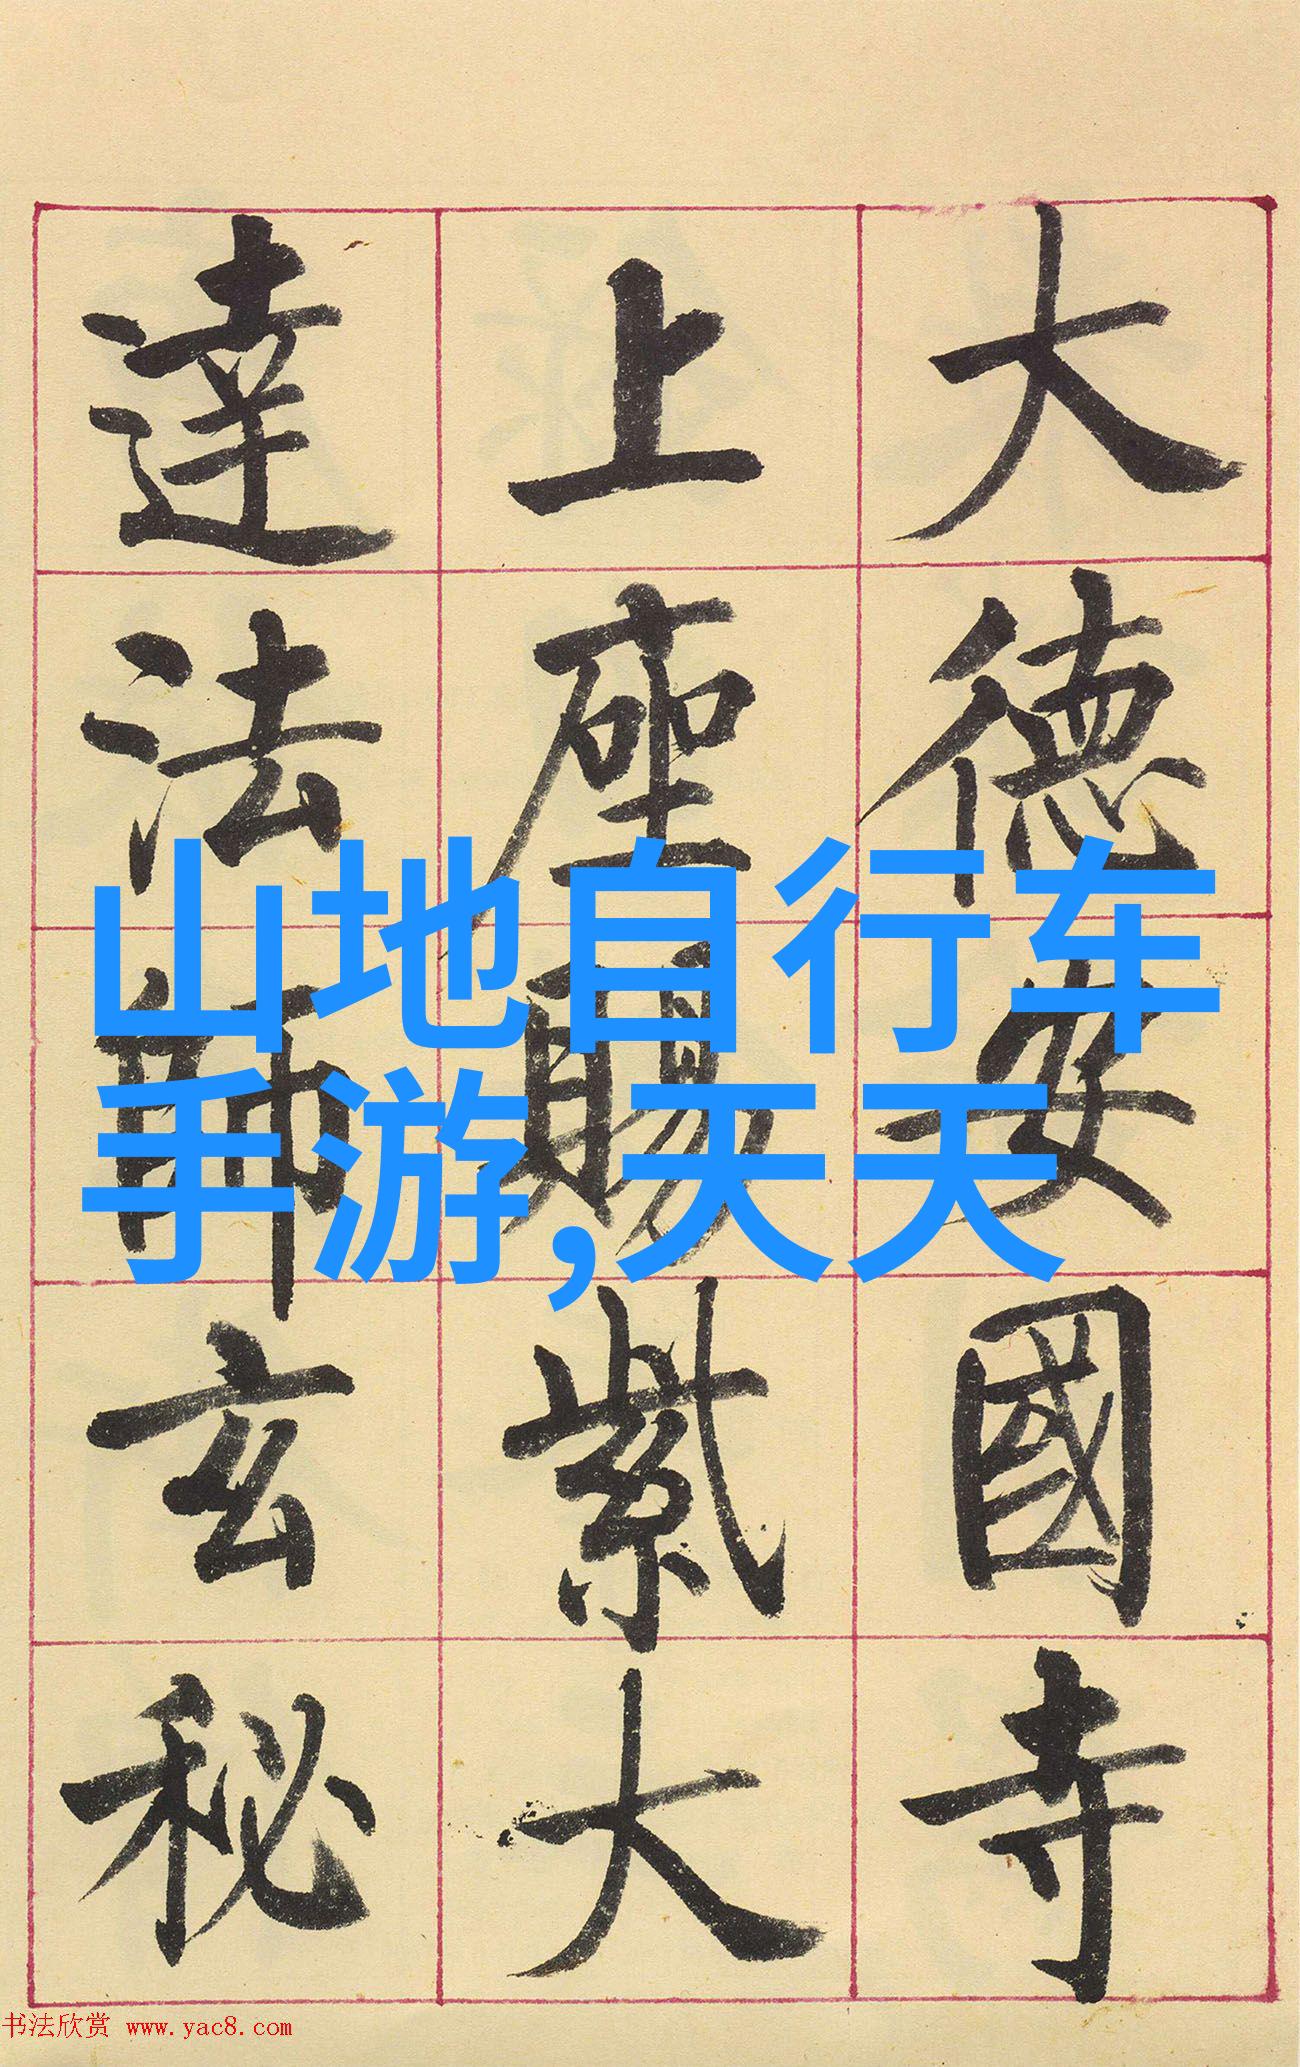 大德安國寺
上座賜紫大
達法師玄秘
山地自行车
手游,天天
书法欣赏 www.yac8.com